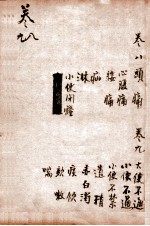 卷八 頭痛
心腹痛
腰痛
疝
淋
小便閉癃
卷九 大便不通
小便不通
小便不禁
遺精
赤白濁
痰飲
欬嗽
喘
卷八
九